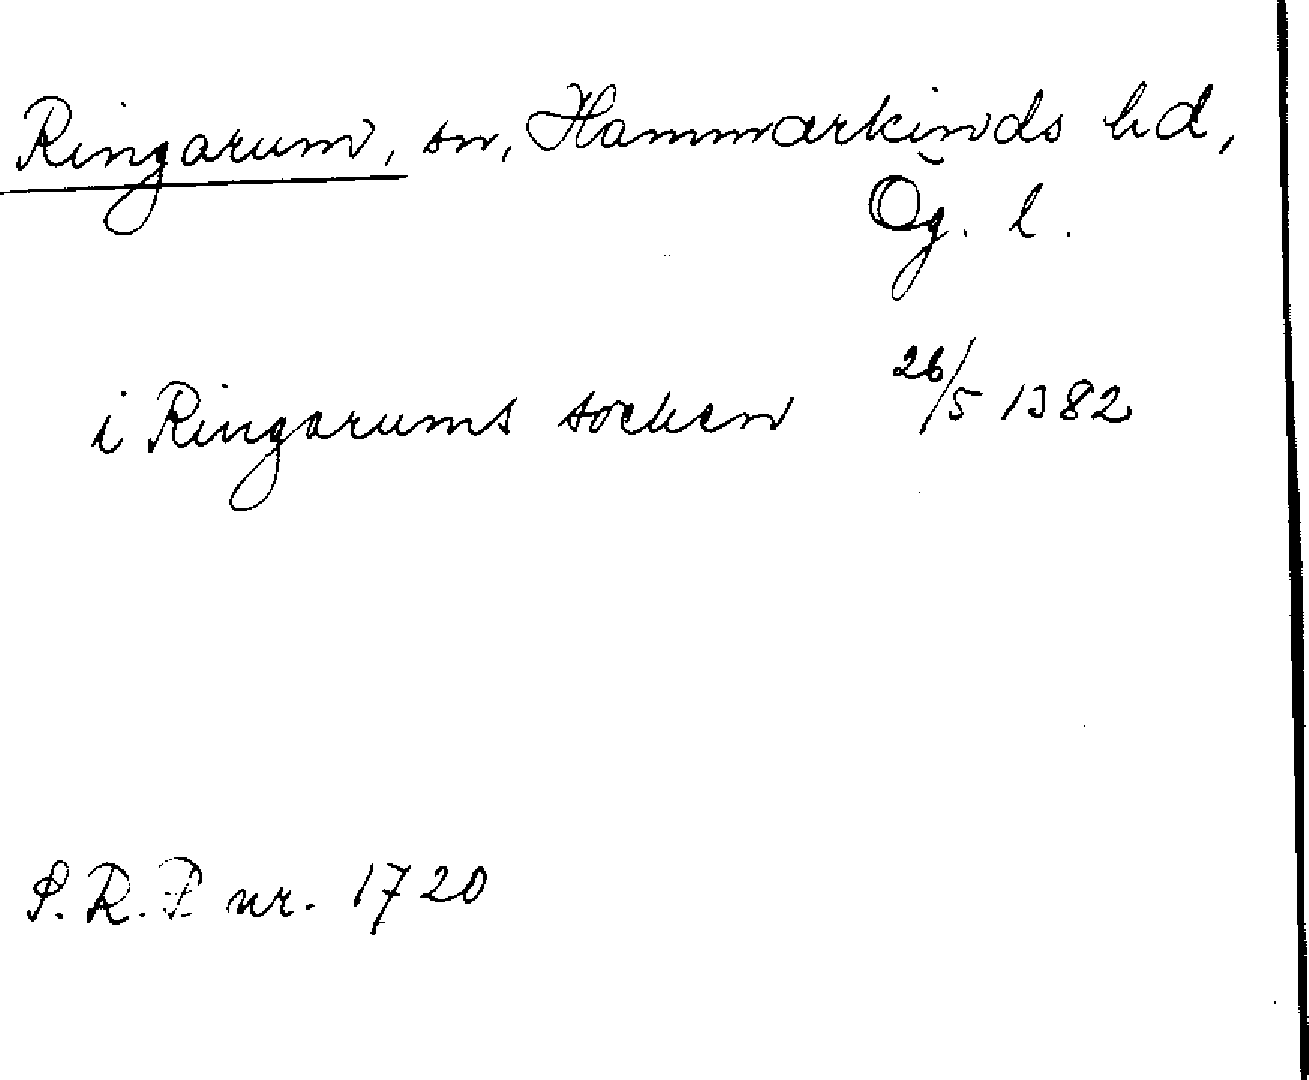 Ringarum, sn, Hammarkinds hd,
Ög. l.
i Ringarums socken 26/5 1382
S.R.P. nr. 1720